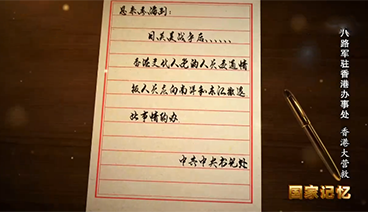 恩来承志:
日美战争后......
香港文化人党的人员交通情
报人员应向南洋和东江撤退
此事请约办
中共中央书记处
八路军驻香港办事处 香港大营救
国家记忆